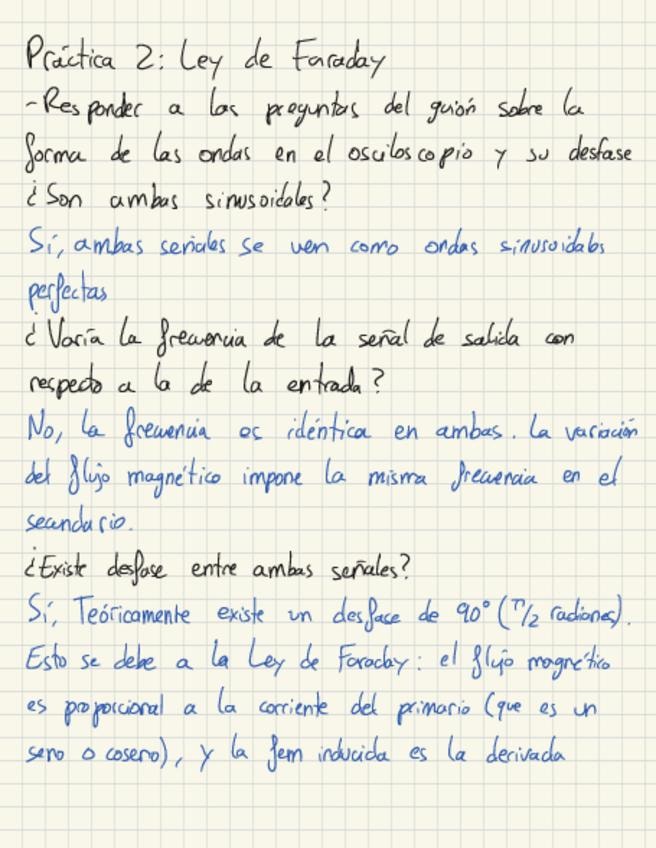 Práctica 2: Ley de Faraday
-Responder a las preguntas del guión sobre la
forma de las ondas en el osciloscopio y su desfase
¿Son ambas sinusoidales?
Sí, ambas señales se ven como ondas sinusoidales
perfectas
¿Varía la frecuencia de la señal de salida con
respecto a la de la entrada?
No, la frecuencia es idéntica en ambas. La variación
del flujo magnético impone la misma frecuencia en el
secundario.
¿Existe desfase entre ambas señales?
Sí, Teóricamente existe un desface de 90° (π/2 radianes).
Esto se debe a la Ley de Faraday: el flujo magnético
es proporcional a la corriente del primario (que es un
seno o coseno), y la fem inducida es la derivada